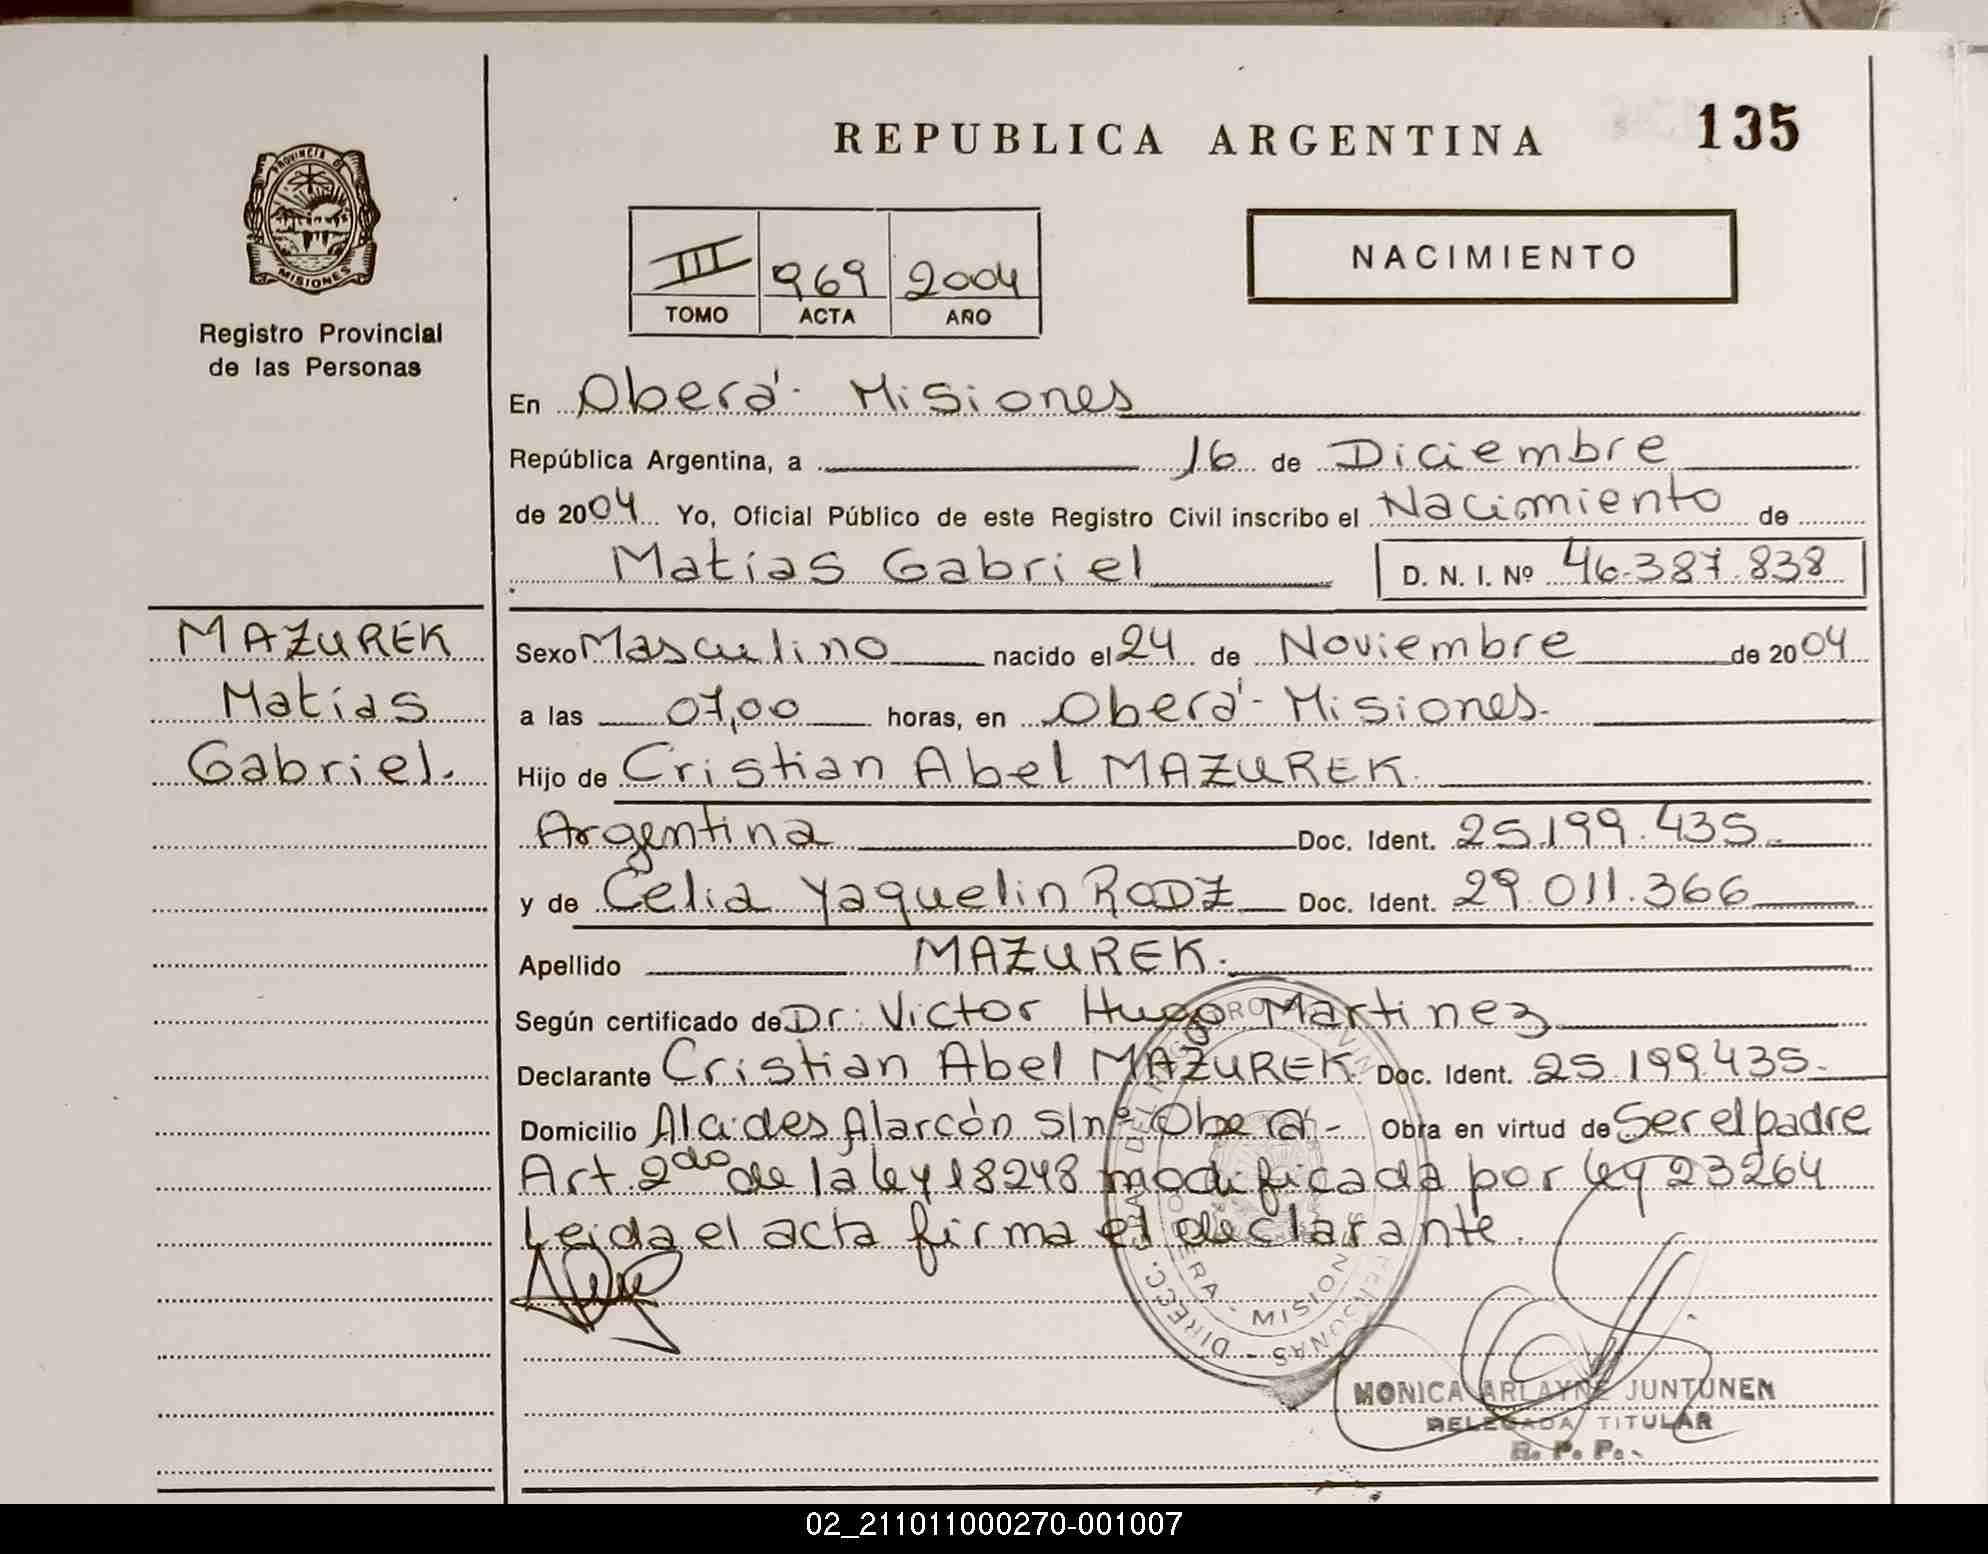 REPUBLICA ARGENTINA
135
PROVINCIA DE
MISIONES
Registro Provincial
de las Personas
III 969 2004
TOMO ACTA AÑO
NACIMIENTO
En Oberá - Misiones
República Argentina, a 16 de Diciembre
de 2004 Yo, Oficial Público de este Registro Civil inscribo el Nacimiento de
Matías Gabriel D. N. I. Nº 46.387.838
MAZUREK
Matías
Gabriel.
Sexo Masculino nacido el 24 de Noviembre de 2004
a las 07,00 horas, en Oberá - Misiones.
Hijo de Cristian Abel MAZUREK.
Argentina Doc. Ident. 25.199.435
y de Celia Yaquelin RODZ Doc. Ident. 29.011.366
Apellido MAZUREK.
Según certificado de Dr: Victor Hugo Martinez
Declarante Cristian Abel MAZUREK Doc. Ident. 25.199.435.
Domicilio Alcides Alarcón s/nº Oberá - Obra en virtud de Ser el padre
Art. 2do de la ley 18248 modificada por ley 23264
Leida el acta firma el declarante.
DIRECC. DEL REGISTRO PERSONAS
OBERA - MISIONES
MONICA ARLAYNE JUNTUNEN
DELEGADA TITULAR
R. P. P.
02_211011000270-001007